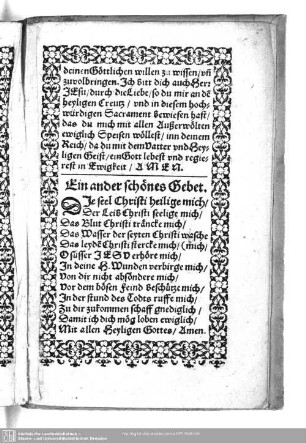 deinen Göttlichen willen zu wissen/ vn̄
zuvolbringen. Ich bitt dich auch Herr
JEsu/ durch die Liebe/ so du mir an dē
heyligen Creutz/ vnd in diesem hoch-
würdigen Sacrament bewiesen hast/
das du mich mit allen Außerwölten
ewiglich Speisen wöllest/ inn deinem
Reich/ da du mit dem Vatter vnd Hey-
ligen Geist/ ein Gott lebest vnd regie-
rest in Ewigkeit/ AMEN.
Ein ander schönes Gebet.
DIe seel Christi heilige mich/
Der Leib Christi seelige mich/
Das Blut Christi träncke mich/
Das Wasser der seyten Christi wasche
Das leydē Christi stercke mich/ (mich/
O süsser JESV erhöre mich/
In deine H. Wunden verbirge mich/
Von dir nicht absöndere mich/
Vor dem bösen Feind beschütze mich/
In der stund des Todts ruffe mich/
Zu dir zukommen schaff gnediglich/
Damit ich dich mög loben ewiglich/
Mit allen Heyligen Gottes/ Amen.